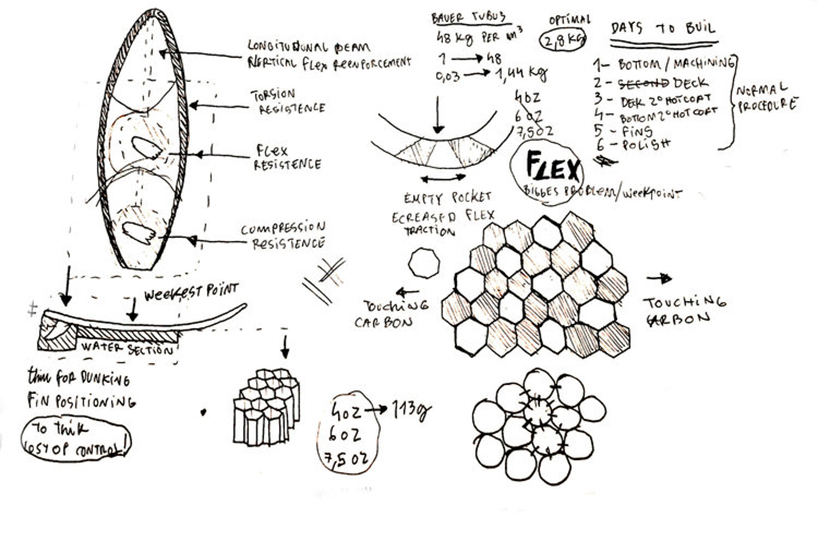 LONGITUDUNAL BEAM
VERTICAL FLEX REENFORCEMENT
TORSION
RESISTENCE
FLEX
RESISTENCE
COMPRESSION
RESISTENCE
WEEKEST POINT
WATER SECTION
thin FOR DUNKING
FIN POSITIONING
TO THIK
BAUER TUBUS
48 kg PER m³
1 → 48
0,03 → 1,44 kg
OPTIMAL
2,8 kg
4 OZ
6 OZ
7,5 OZ
FLEX
BIGGES PROBLEM/WEEKPOINT
EMPTY POCKET
ECREASED FLEX
TRACTION
DAYS TO BUIL
1- BOTTOM/MACHINING
2- SECOND DECK
3- DECK 2º HOTCOAT
4- BOTTOM 2º HOTCOAT
5- FINS
6- POLISH
NORMAL
PROCEDURE
TOUCHING
CARBON
TOUCHING
CARBON
4 OZ → 113g
6 OZ
7,5 OZ